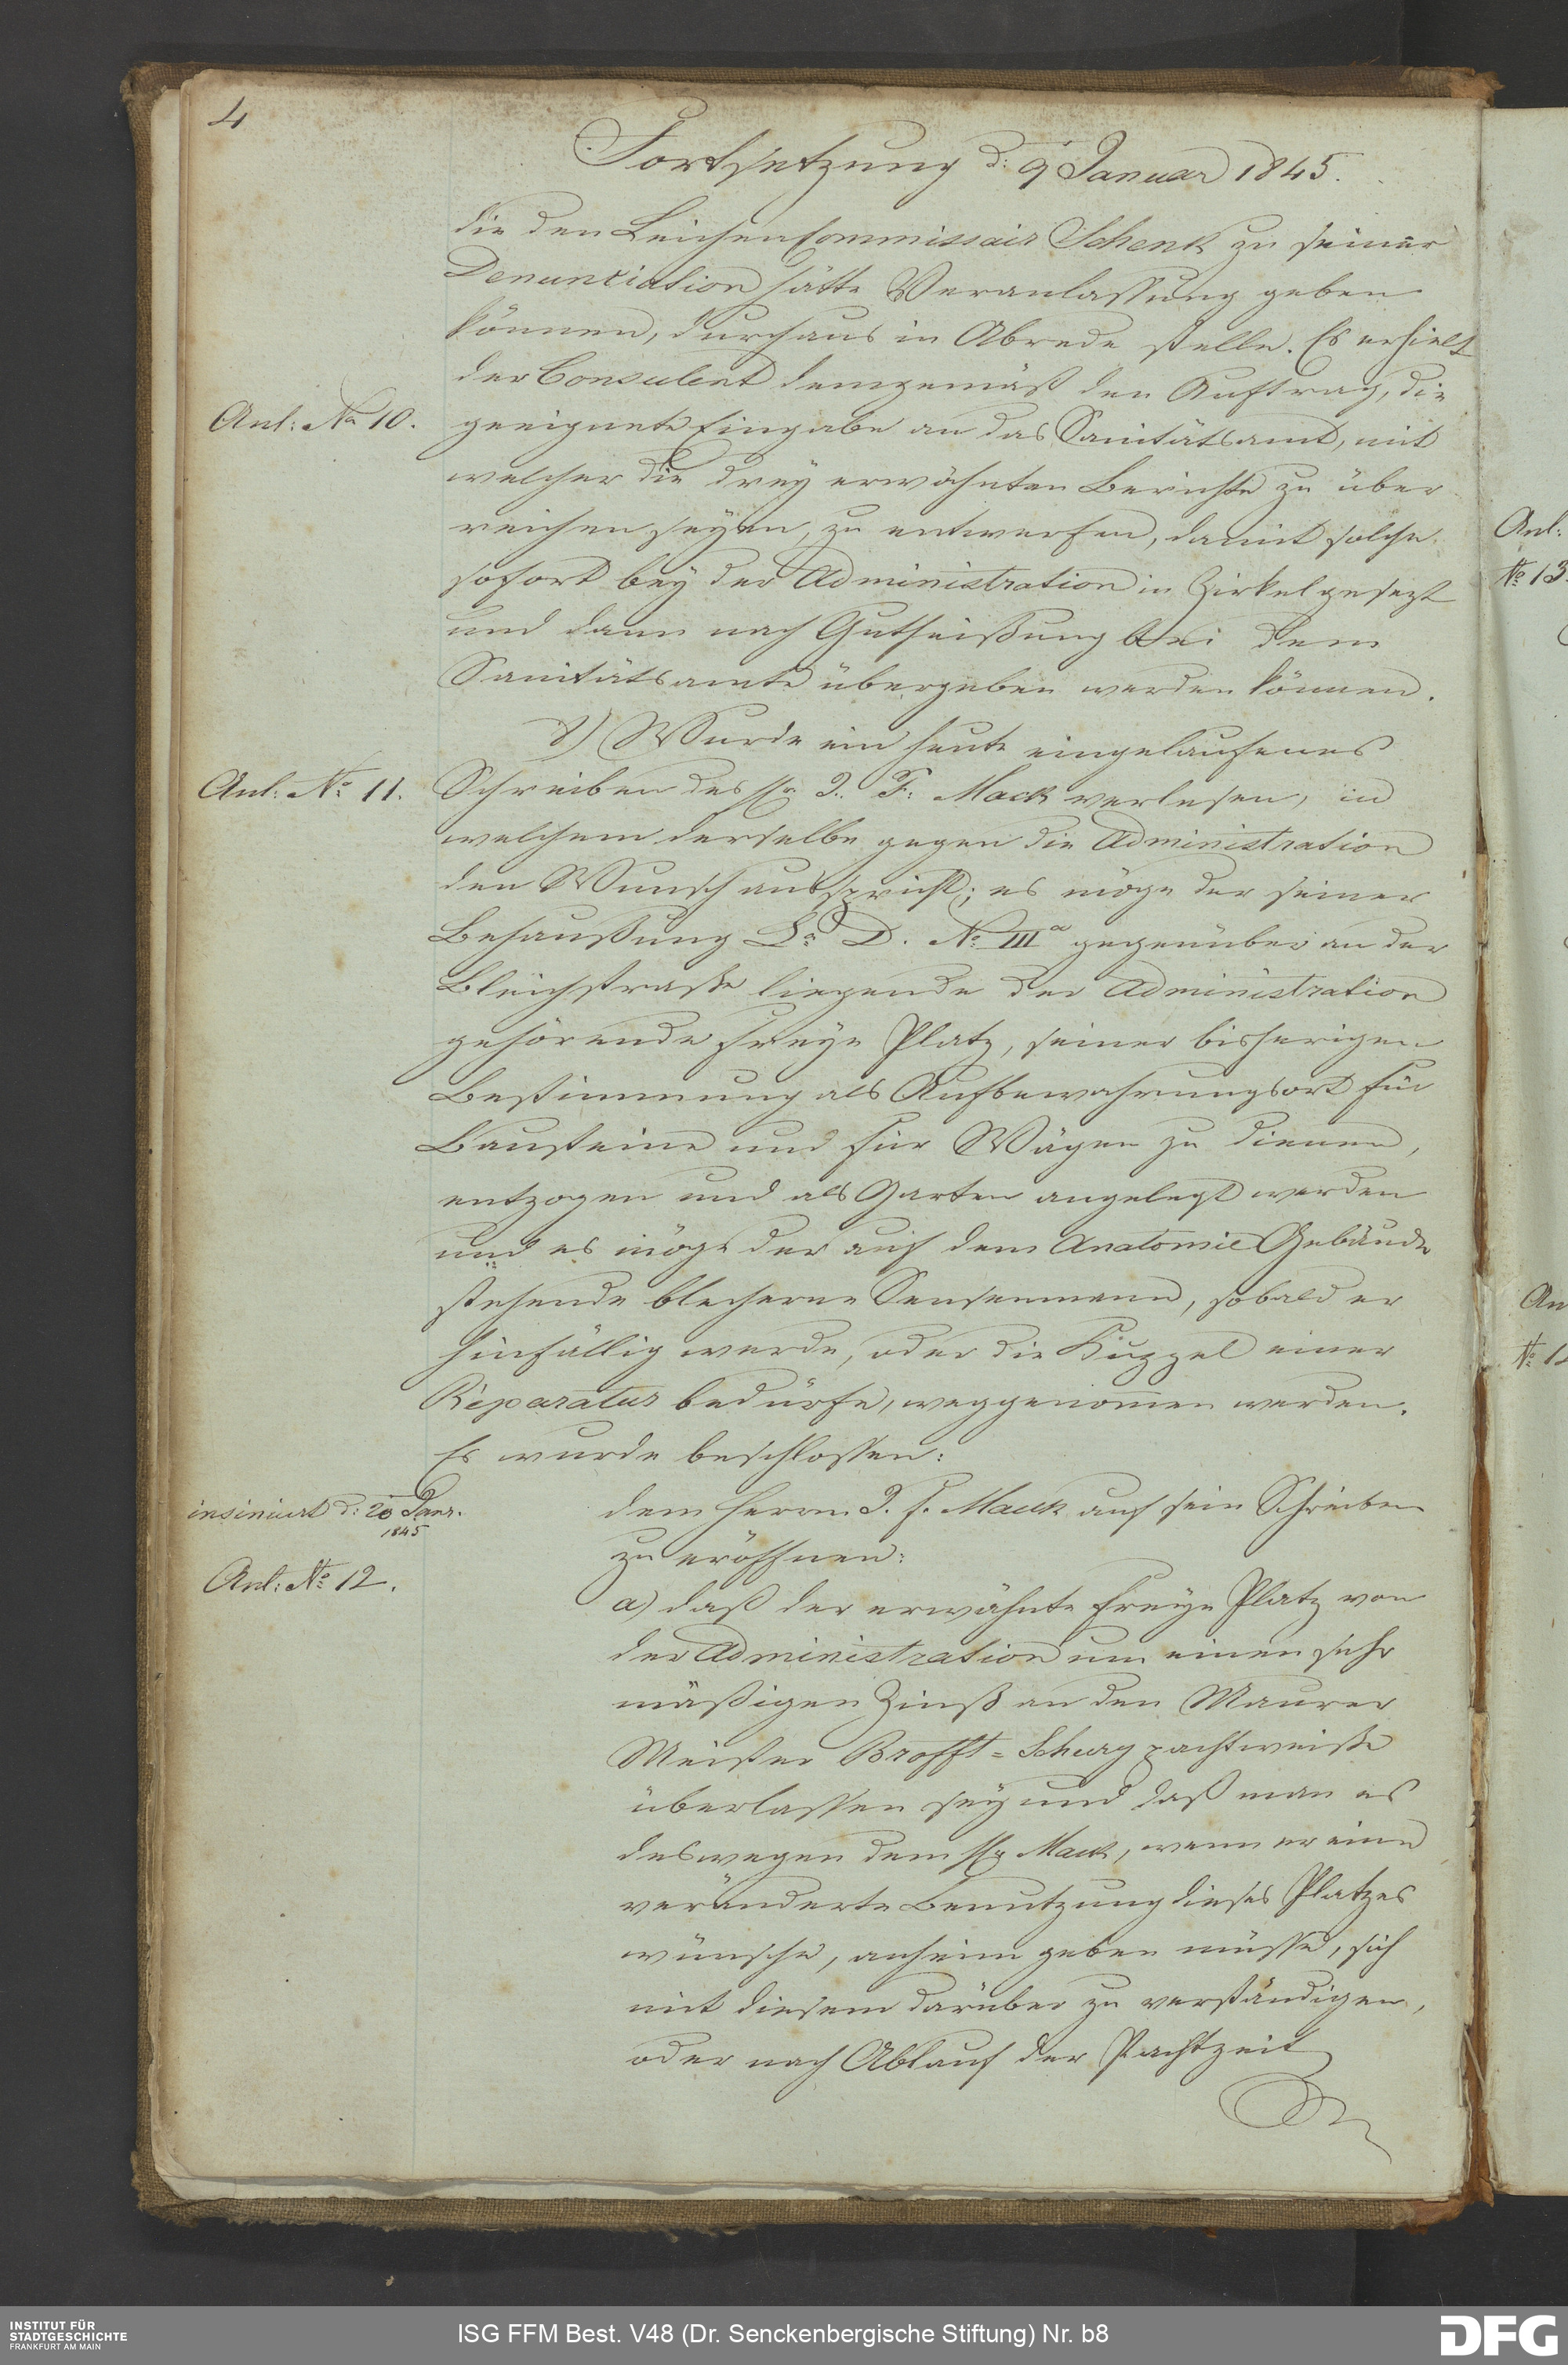 4
Fortsetzung d: 9 Januar 1845.
die den Leichen Commissair Schenk zu seiner
Denunciation hätte Veranlassung geben
können, durchaus in Abrede stelle. Es erhielt
der Consulent demgemäß den Auftrag, die
Anl: No 10.
geeignete Eingabe an das Sanitätsamt, mit
welcher die drey erwähnten Berichte zu über
reichen seyen, zu entwerfen, damit solche
sofort bey der Administration in Zirkel gesezt
und dann nach Gutheißung bei dem
Sanitätsamte übergeben werden können.
8) Wurde ein heute eingelaufenes
Anl: No 11.
Schreiben des Hr. J. F. Mack verlesen, in
welchem derselbe gegen die Administration
den Wunsch ausspricht; es möge der seiner
Behaußung La D. No III a gegenüber an der
Bleichstraße liegende der Administration
gehörende freye Platz, seiner bisherigen
Bestimmung als Aufbewahrungsort für
Bausteine und für Wägen zu dienen,
entzogen und als Garten angelegt werden
und es möge der auf dem Anatomie Gebäude
stehende blecherne Sensenmann, sobald er
hinfällig werde, oder die Kuppel einer
Reparatur bedürfe, weggenommen werden.
Es wurde beschlossen:
insinuirt d: 20 Janr.
1845
dem Herrn J. F. Mack auf sein Schreiben
zu eröffnen:
Anl: No 12.
a) daß der erwähnte freye Platz von
der Administration um einen sehr
mäßigen Zinß an den Maurer
Meister Brofft=Schurg pachtweiße
überlassen sey und daß man es
deswegen dem Hr Mack, wenn er eine
veränderte Benutzung dieses Platzes
wünsche, anheim geben müsse, sich
mit diesem darüber zu verständigen,
oder nach Ablauf der Pachtzeit
Anl:
No 13
An
No 1
INSTITUT FÜR
STADTGESCHICHTE
FRANKFURT AM MAIN
ISG FFM Best. V48 (Dr. Senckenbergische Stiftung) Nr. b8
DFG